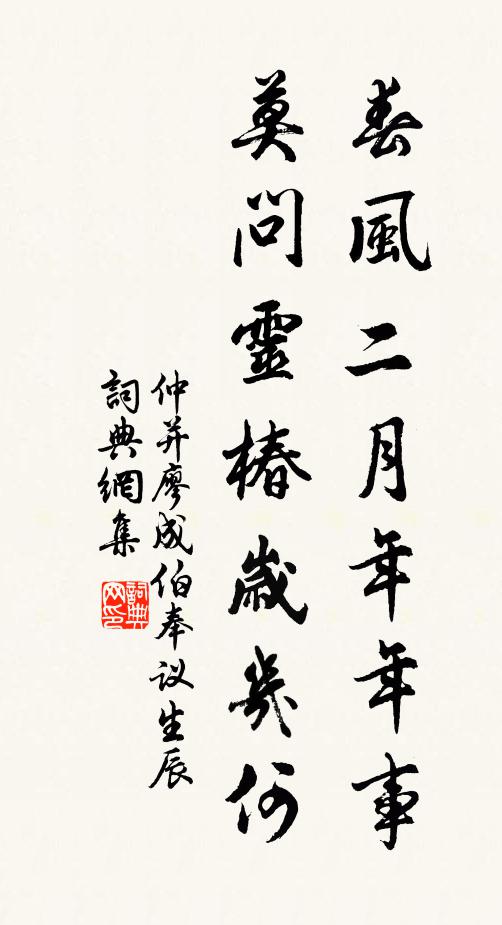 春風二月年年事
莫問靈椿歲幾何
仲并廖成伯奉议生辰
詞典網集
詞典网印